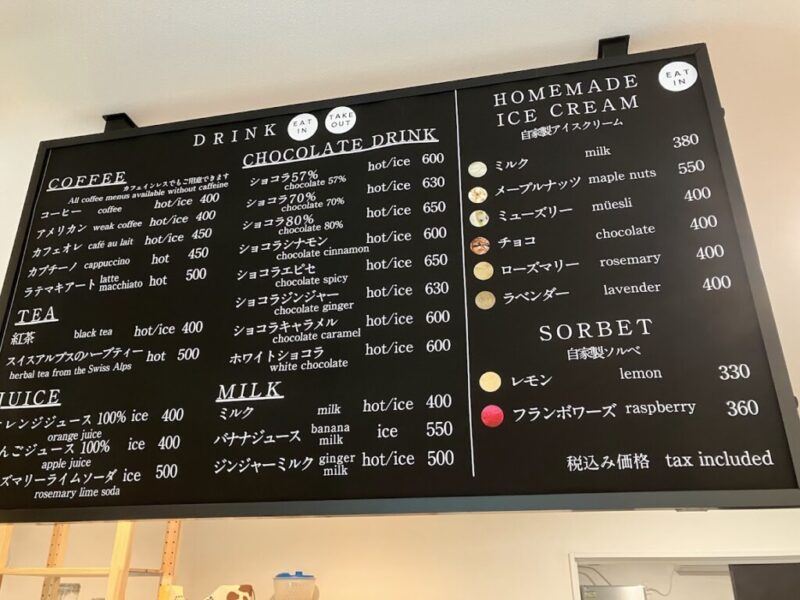 DRINK EAT IN TAKE OUT
COFFEE
カフェインレスでもご用意できます
All coffee menus available without caffeine
コーヒー coffee hot/ice 400
アメリカン weak coffee hot/ice 400
カフェオレ café au lait hot/ice 450
カプチーノ cappuccino hot 450
ラテマキアート latte macchiato hot 500
TEA
紅茶 black tea hot/ice 400
スイスアルプスのハーブティー hot 500
herbal tea from the Swiss Alps
JUICE
レンジジュース 100% ice 400
orange juice
んごジュース 100% ice 400
apple juice
ズマリーライムソーダ ice 500
rosemary lime soda
CHOCOLATE DRINK
ショコラ57% hot/ice 600
chocolate 57%
ショコラ70% hot/ice 630
chocolate 70%
ショコラ80% hot/ice 650
chocolate 80%
ショコラシナモン hot/ice 600
chocolate cinnamon
ショコラエピセ hot/ice 650
chocolate spicy
ショコラジンジャー hot/ice 630
chocolate ginger
ショコラキャラメル hot/ice 600
chocolate caramel
ホワイトショコラ hot/ice 600
white chocolate
MILK
ミルク milk hot/ice 400
バナナジュース banana milk ice 550
ジンジャーミルク ginger milk hot/ice 500
HOMEMADE
ICE CREAM
EAT IN
自家製アイスクリーム
ミルク milk 380
メープルナッツ maple nuts 550
ミューズリー müesli 400
チョコ chocolate 400
ローズマリー rosemary 400
ラベンダー lavender 400
SORBET
自家製ソルベ
レモン lemon 330
フランボワーズ raspberry 360
税込み価格 tax included